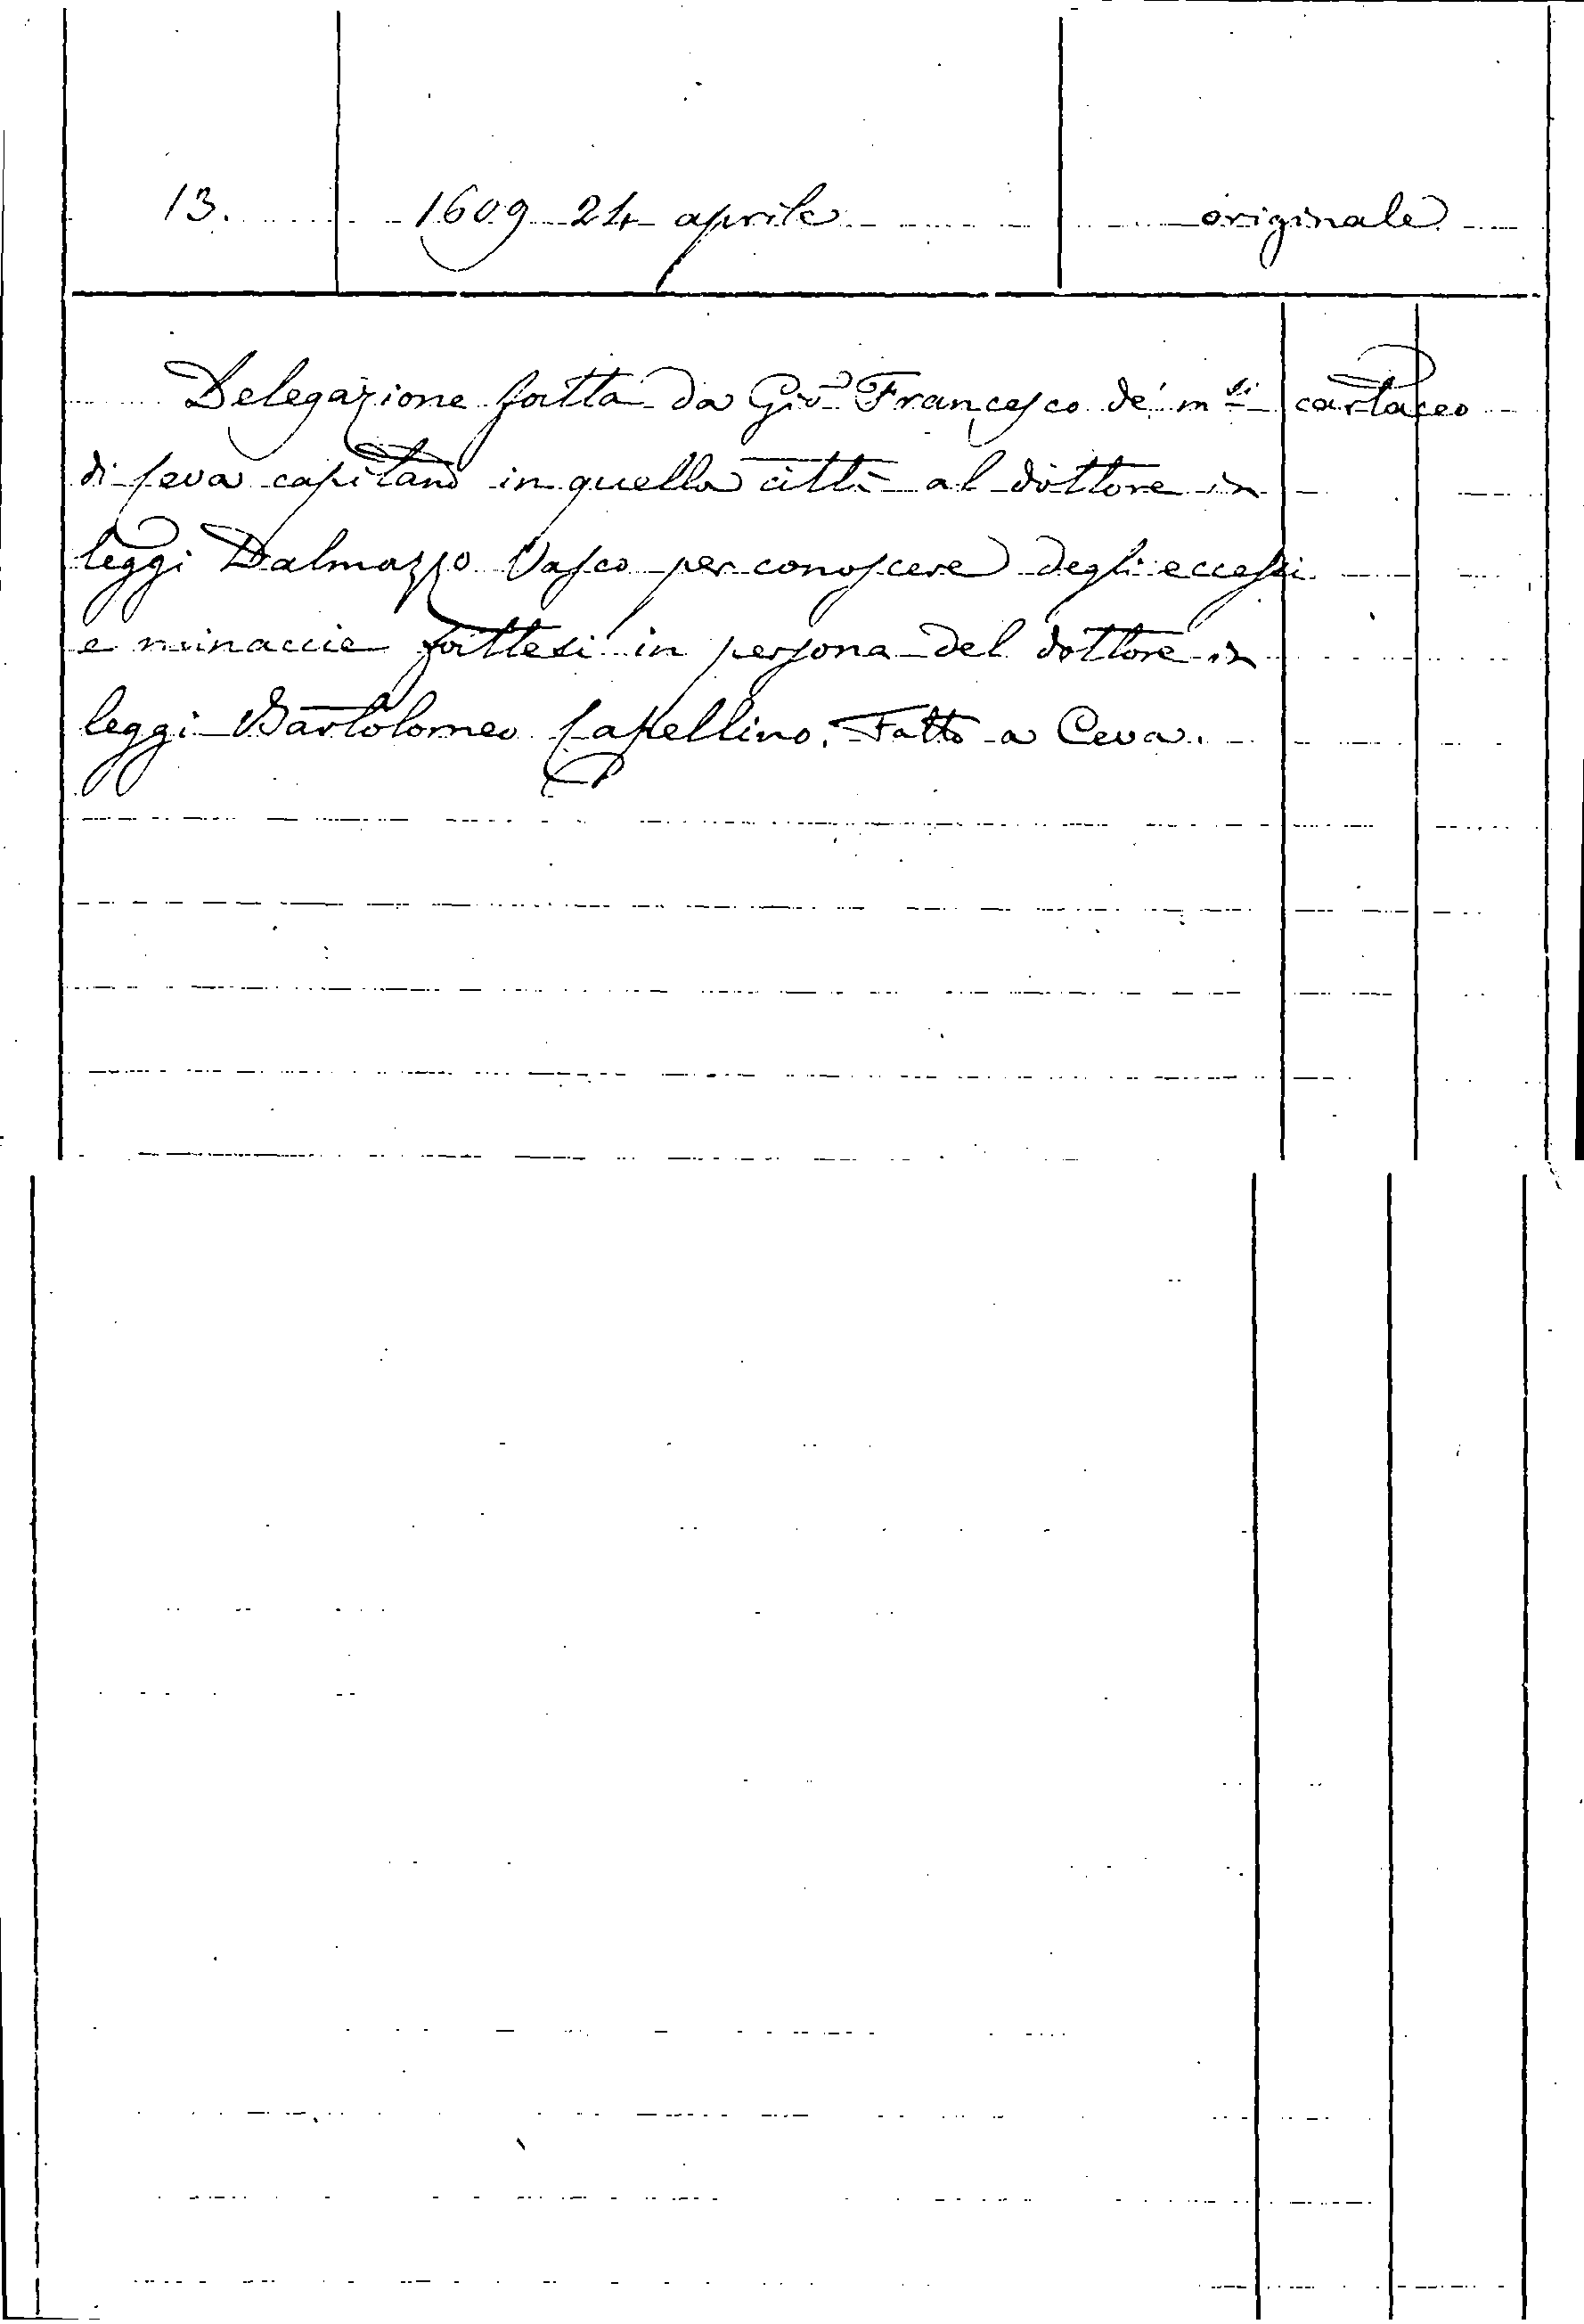 13. 1609 24 aprile originale
Delegazione fatta da Gio Francesco de' m.si cartaceo
di Ceva capitano in quella città al dottore in
leggi Dalmazzo Vasco per conoscere degli eccessi
e minaccie fattesi in persona del dottore in
leggi Bartolomeo Capellino. Fatto a Ceva.